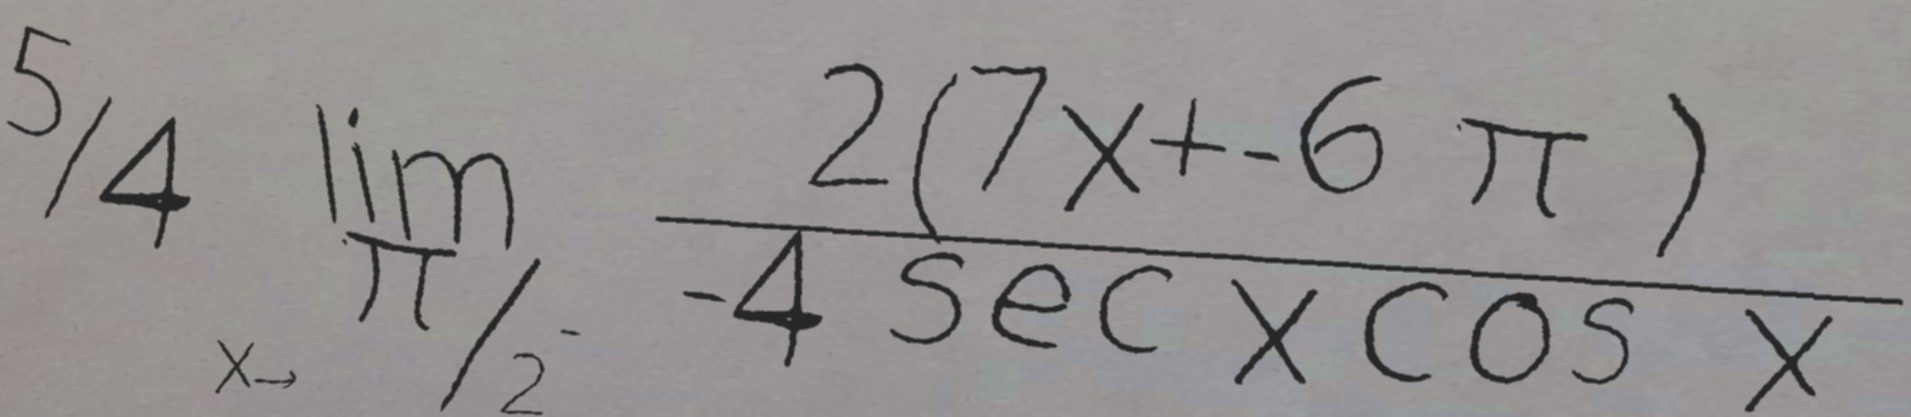 5/4 lim x→π/2⁻ 2(7x+-6π) / -4 sec x cos x